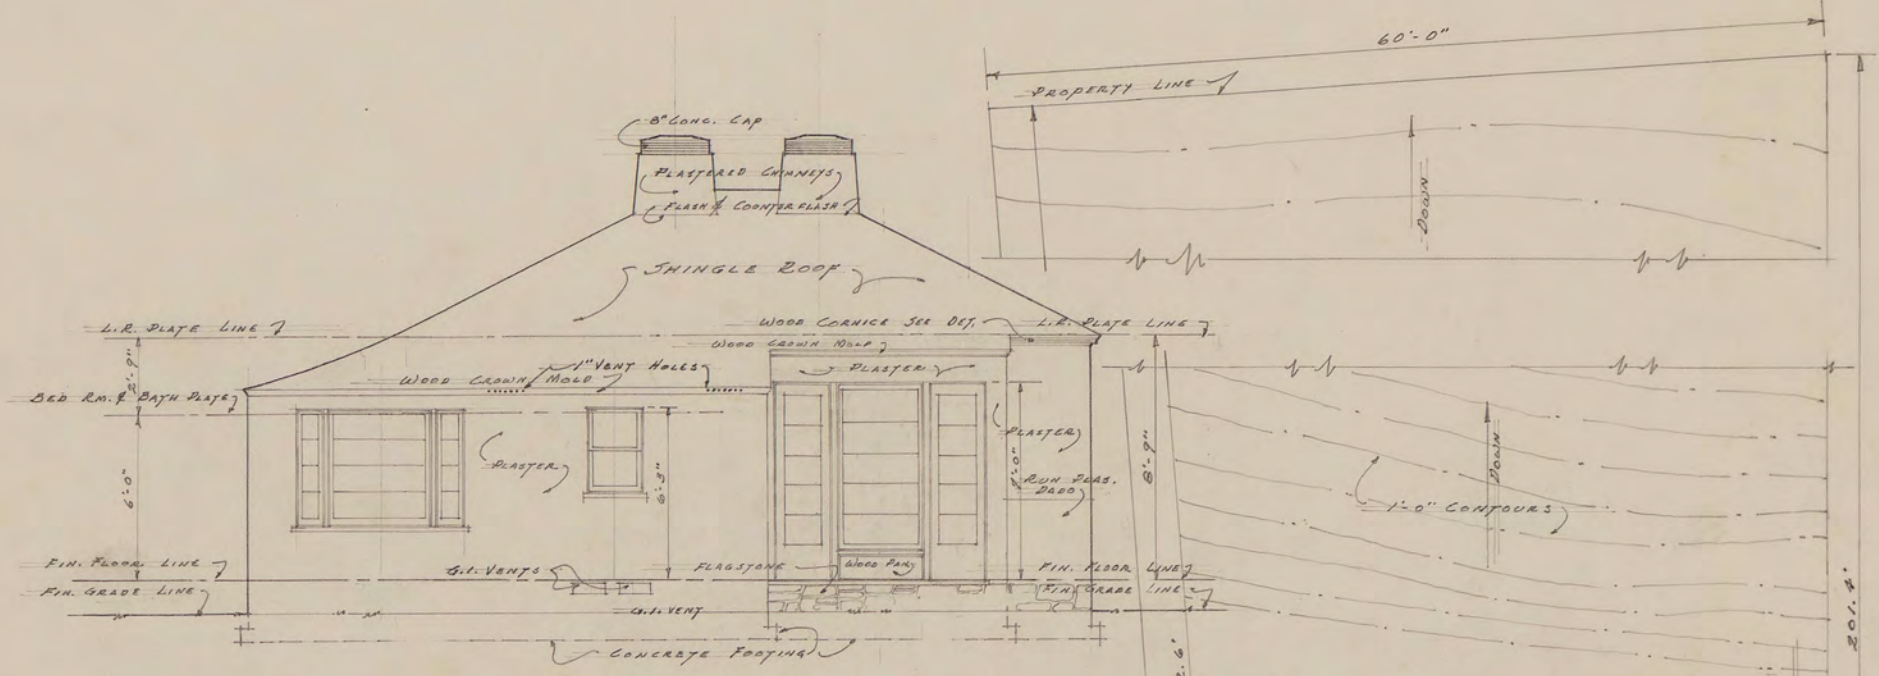 60'-0"
PROPERTY LINE
8" CONC. CAP
PLASTERED CHIMNEYS
FLASH & COUNTERFLASH
DOWN
SHINGLE ROOF
L.R. PLATE LINE
WOOD CORNICE SEE DET.
L.R. PLATE LINE
WOOD CROWN MOLD
2'-9"
1" VENT HOLES
PLASTER
WOOD CROWN MOLD
BED RM. & BATH PLATE
PLASTER
PLASTER
DOWN
6'-0"
6'-3"
7'-0"
8'-9"
RUN PLAS.
DADO
1'-0" CONTOURS
FIN. FLOOR LINE
G.I. VENTS
FLAGSTONE
WOOD PANL
FIN. FLOOR LINE
FIN. GRADE LINE
FIN. GRADE LINE
G.I. VENT
201.4'
CONCRETE FOOTING